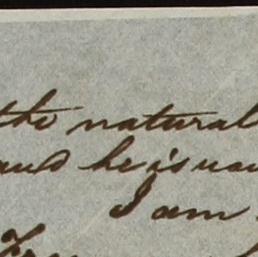 the natural
and he is now
I am